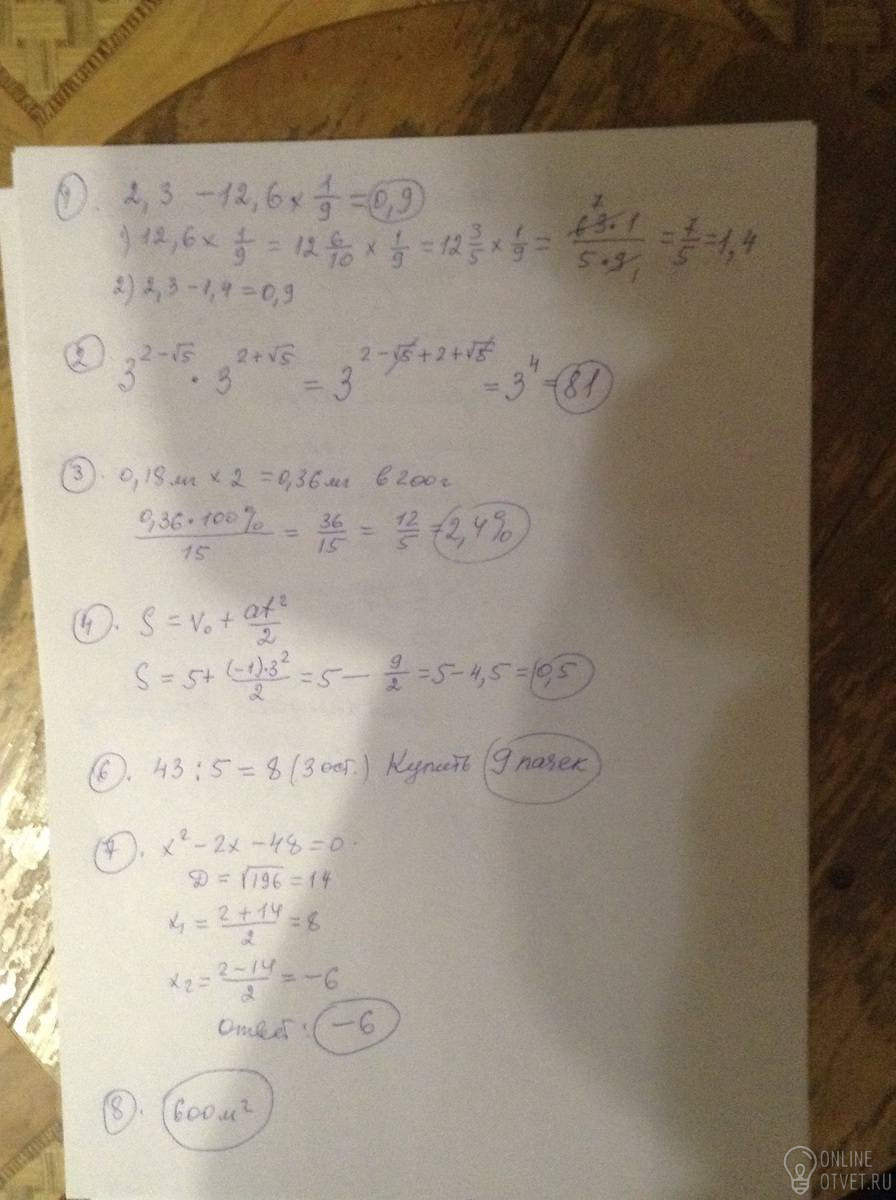 1. 2,3 - 12,6 × 1/9 = 0,9
1) 12,6 × 1/9 = 12 6/10 × 1/9 = 12 3/5 × 1/9 = 63·1/5·9 7 1 = 7/5 = 1,4
2) 2,3 - 1,4 = 0,9
2 3^(2-√5) · 3^(2+√5) = 3^(2-√5+2+√5) = 3^4 = 81
3. 0,18 мг × 2 = 0,36 мг в 200 г
0,36·100%/15 = 36/15 = 12/5 = 2,4%
4. S = v₀ + at²/2
S = 5 + (-1)·3²/2 = 5 - 9/2 = 5 - 4,5 = 0,5
6. 43 : 5 = 8 (3 ост.) Купить 9 пачек
7. x² - 2x - 48 = 0.
D = √196 = 14
x₁ = 2+14/2 = 8
x₂ = 2-14/2 = -6
Ответ: -6
8. 600 м²
ONLINE
OTVET.RU